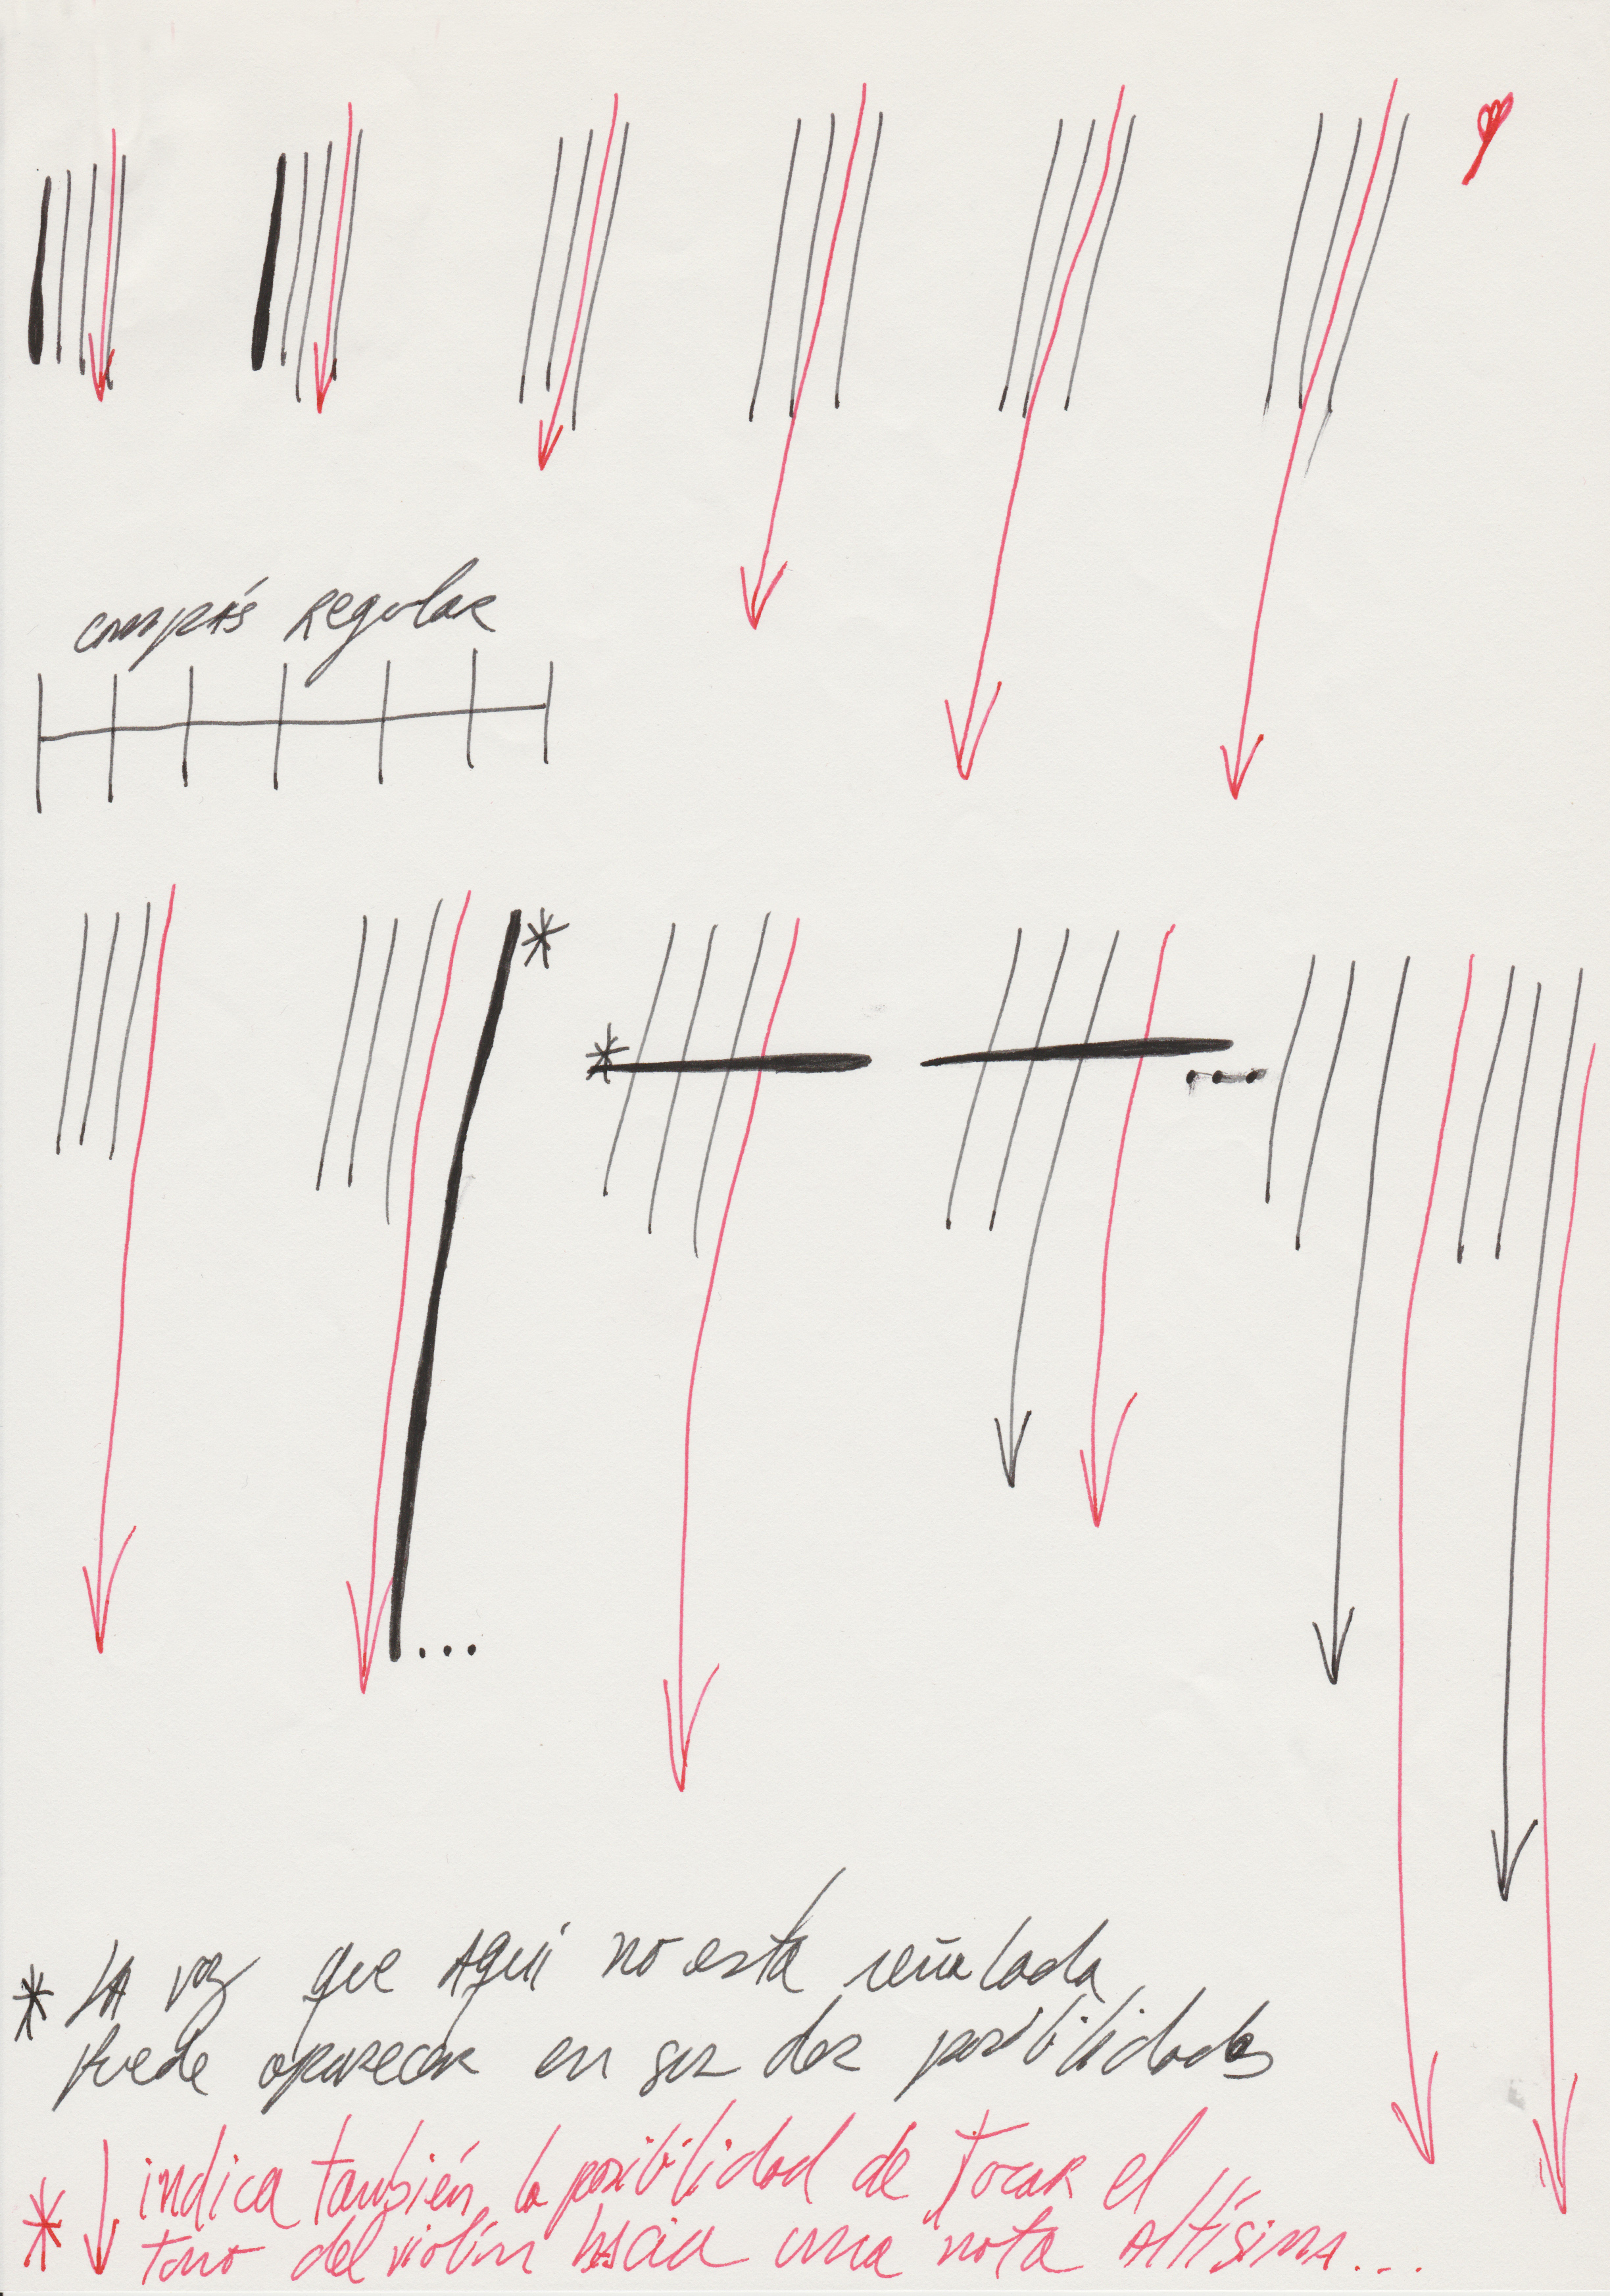 compás regular
...
...
* la voz que aquí no esta señalada
puede aparecer en sus dos posibilidades
* ↓ indica también la posibilidad de tocar el
tono del violín hacia una nota altísima...